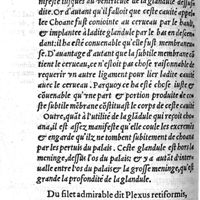 meste iusques au ventricule de la glandule dessus
dite. Or d'autant qu'il falloit que ceste cauité appel-
lee Choane fust conioinéte au cerueau par le hault,
& implantée à ladite glandule par le bas en descen-
dant: il a esté conuenable qu'elle fust membraneu-
se. D'auantage d'autant que la subtile membrane
estoit pres du cerueau, ce n'estoit chose raisonnable de
requerir yn autre ligament pour lier ladite cauité
auec le cerueau. Parquoy ce baßin est chose toute
yne cauité & portion produite de ce-
ste subtile mébrane côstituāt le corps de ceste cauité
Outre, quât à l'utilité de la glādule qui reçoit cho
ana, il est assez manifeste qu'elle coule les excremēs
& engarde qu'ilz ne tombent subitement de choana
par les pertuis du palais. Ceste glandule est hors la
meninge, dessus l'os du palais: & y a autāt d'inter-
ualle entre l'os du palais & la grosse meninge, qu'est
grande la profondité de la glandule.
Du filet admirable dit Plexus retiformis,